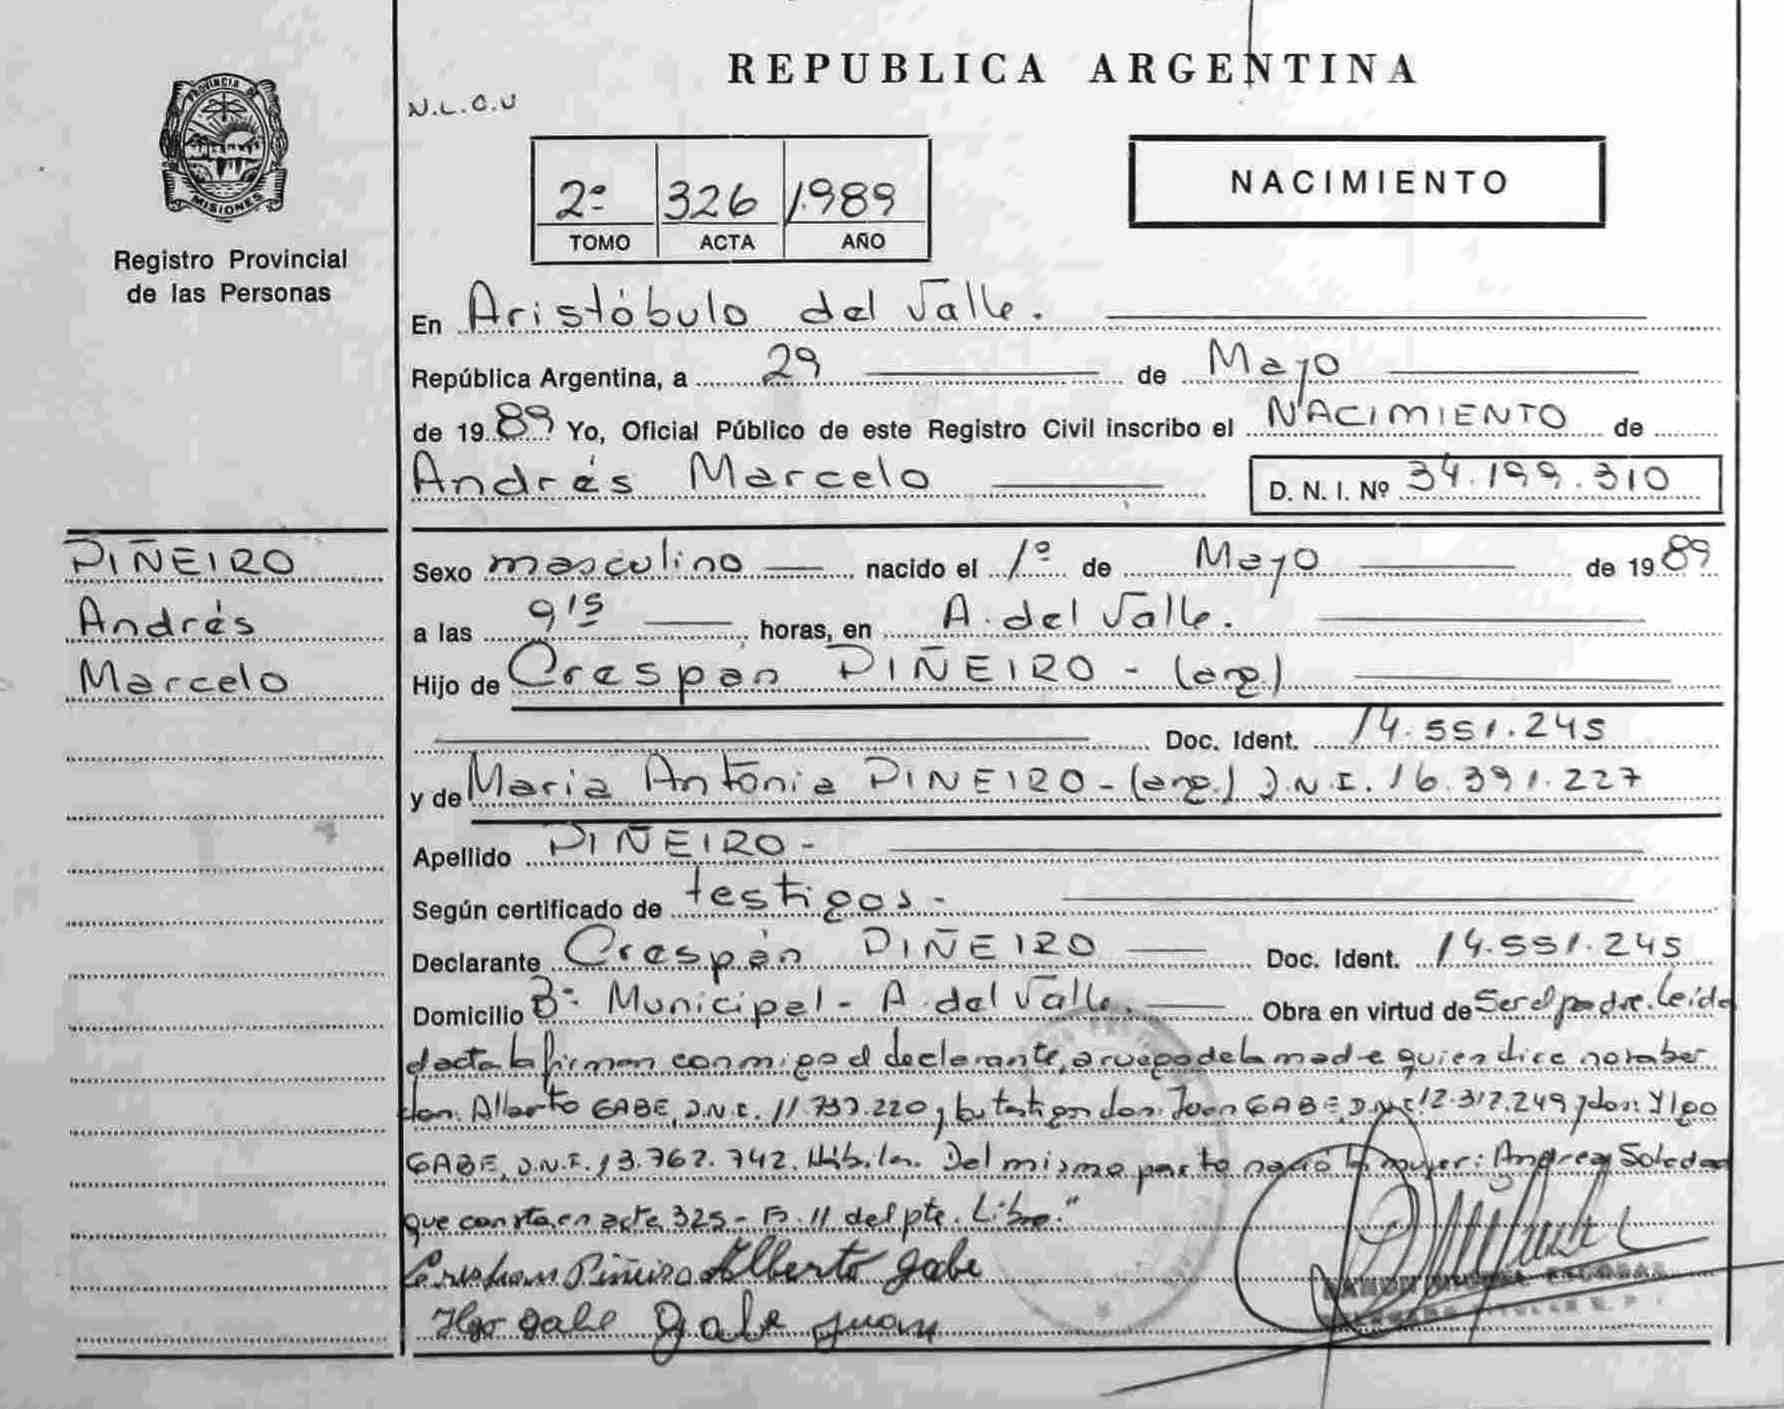 REPUBLICA ARGENTINA
N.L.O.U
PROVINCIA DE
MISIONES
Registro Provincial
de las Personas
NACIMIENTO
2º 326 1.989
TOMO ACTA AÑO
En Aristóbulo del Valle.
República Argentina, a 29 de Mayo
de 1989 Yo, Oficial Público de este Registro Civil inscribo el NACIMIENTO de
Andrés Marcelo D. N. I. Nº 34.199.310
PIÑEIRO
Andrés
Marcelo
Sexo masculino nacido el 1º de Mayo de 1989
a las 9 15 horas, en A. del Valle.
Hijo de Crespán PIÑEIRO - (arg.)
Doc. Ident. 14.551.245
y de Maria Antonia PIÑEIRO - (arg.) D.N.I. 16.391.227
Apellido PIÑEIRO -
Según certificado de testigos -
Declarante Crespán PIÑEIRO Doc. Ident. 14.551.245
Domicilio Bº Municipal - A. del Valle. Obra en virtud de Ser el padre. Leída
el acta la firman conmigo el declarante, a ruego de la madre quien dice no saber
don: Alberto GABE, D.N.I. 11.737.220 y los testigos don: Juan GABE, D.N.I. 12.317.249 y don: Ylgo
GABE, D.N.I. 13.762.742. Hábiles. Del mismo parto nació la mujer: Andrea Soledad
que consta en acta 325 - del pte. Libro."
Piñeiro Alberto Gabe
Gabe Gabe Juan